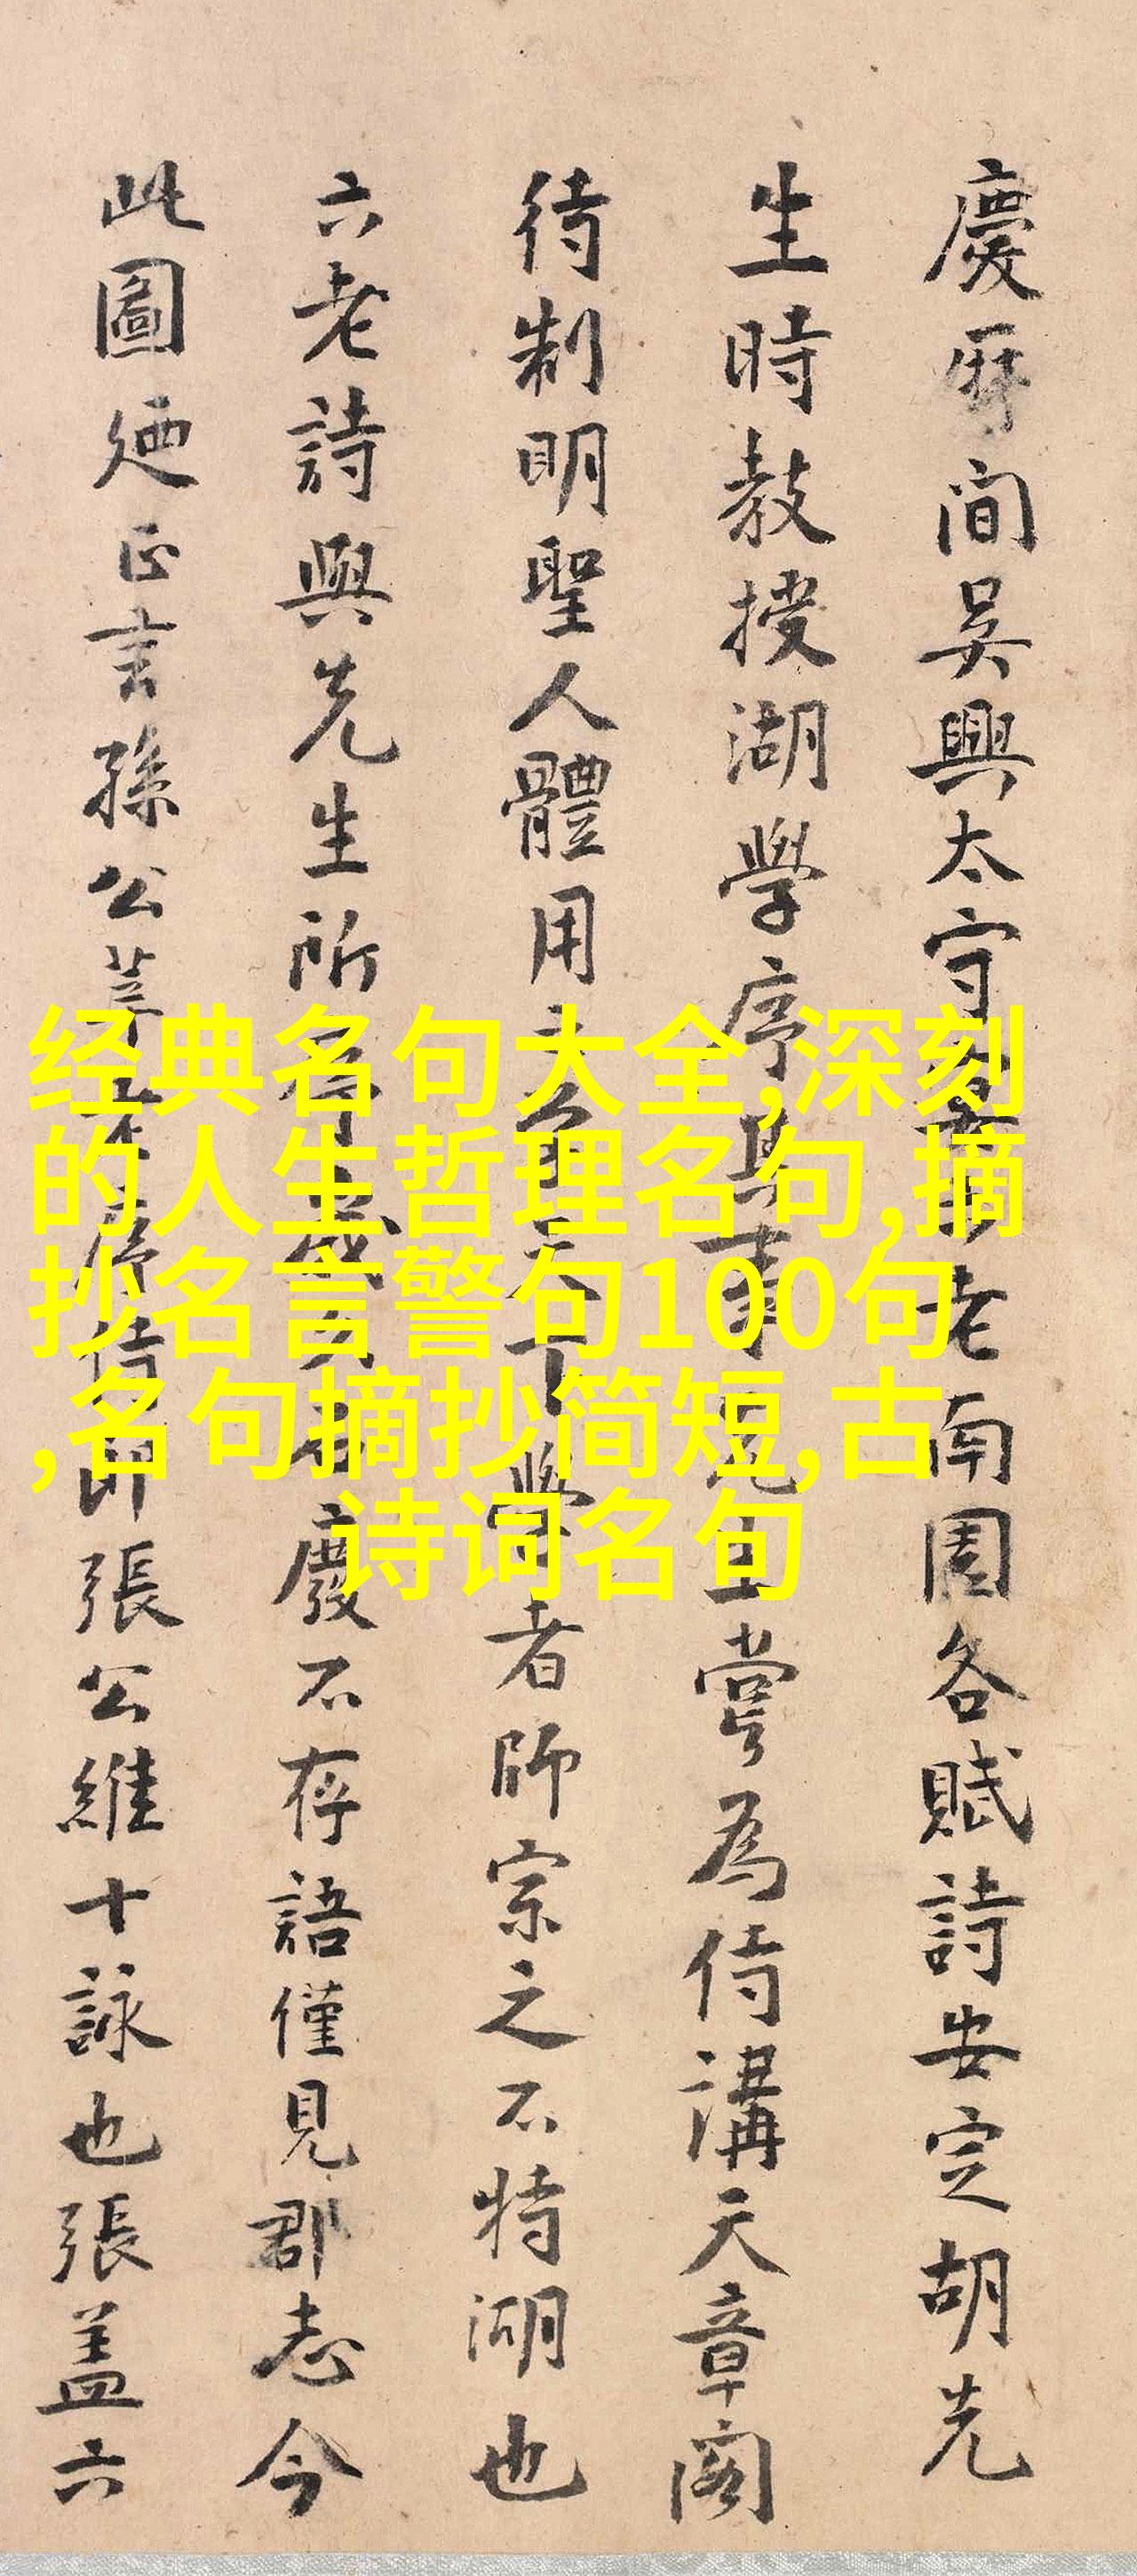 慶厤间吴興太守
老南園各賦詩安定胡先
生時教授湖學序其事
嘗為侍講天章閣
待制明聖人體用
天下學者師宗之不特湖也
六老詩興先生所序
廢不存語僅見郡志今
此圖廼正言孫公莘
序侍郎張公維十詠也張盖六
经典名句大全,深刻
的人生哲理名句,摘
抄名言警句100句
,名句摘抄简短,古
诗词名句